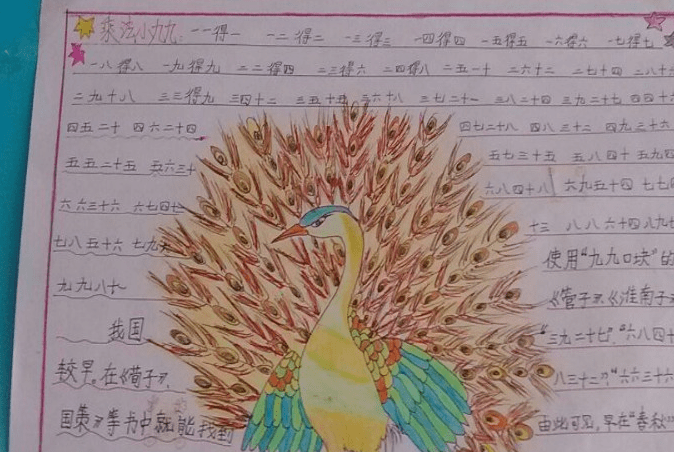 乘法小九九: 一一得一 一二得二 一三得三 一四得四 一五得五 一六得六 一七得七
一八得八 一九得九 二二得四 二三得六 二四得八 二五一十 二六十二 二七十四 二八十六
二九十八 三三得九 三四十二 三五十五 三六十八 三七二十一 三八二十四 三九二十七 四四十
四五二十 四六二十四 四七二十八 四八三十二 四九三十六
五五二十五 五六三十 五七三十五 五八四十 五九四
六六三十六 六七四十 六八四十八 六九五十四 七七
七八五十六 七九六 十三 八八六十四 八九七
使用“九九口诀”的
九九八十一 《管子》《淮南子》
我国 “三九二十七”、“六八四十
较早。在《荀子》、 八三十二”、“六六三十六
国策》等书中就能找到 由此可见,早在“春秋”